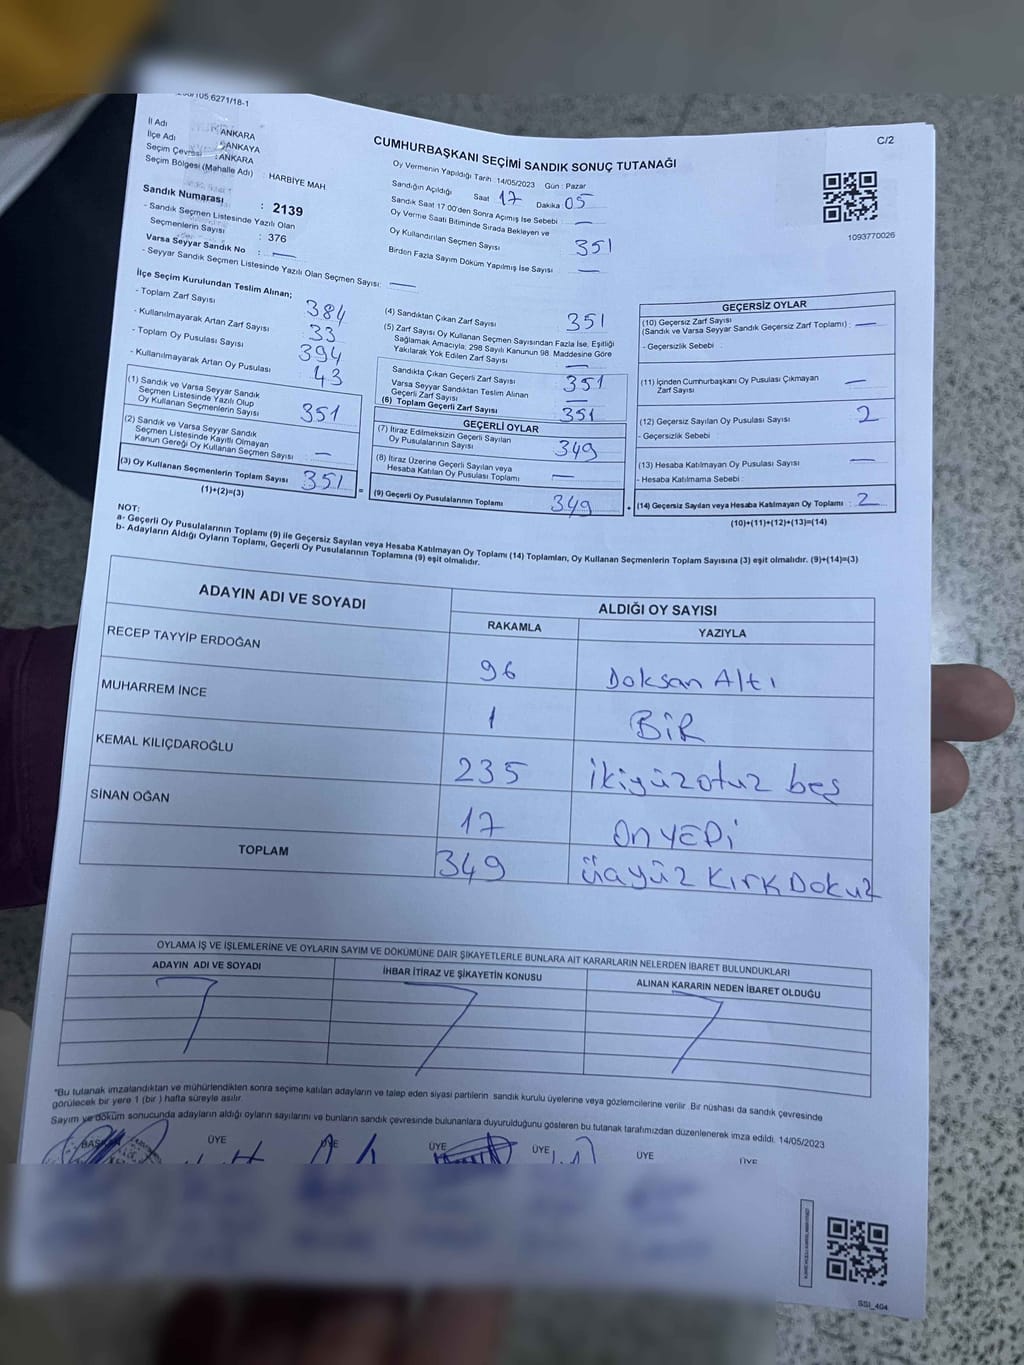 C/2
İl Adı : ANKARA
İlçe Adı : ÇANKAYA
Seçim Çevresi : ANKARA
Seçim Bölgesi (Mahalle Adı) : HARBİYE MAH
Sandık Numarası : 2139
- Sandık Seçmen Listesinde Yazılı Olan
Seçmenlerin Sayısı : 376
Varsa Seyyar Sandık No : —
- Seyyar Sandık Seçmen Listesinde Yazılı Olan Seçmen Sayısı: —
CUMHURBAŞKANI SEÇİMİ SANDIK SONUÇ TUTANAĞI
Oy Vermenin Yapıldığı Tarih : 14/05/2023 Gün : Pazar
Sandığın Açıldığı Saat 17 Dakika 05
Sandık Saat 17:00'den Sonra Açılmış İse Sebebi : —
Oy Verme Saati Bitiminde Sırada Bekleyen ve
Oy Kullandırılan Seçmen Sayısı 351
Birden Fazla Sayım Döküm Yapılmış İse Sayısı —
1093770026
İlçe Seçim Kurulundan Teslim Alınan;
- Toplam Zarf Sayısı 384
- Kullanılmayarak Artan Zarf Sayısı 33
- Toplam Oy Pusulası Sayısı 394
- Kullanılmayarak Artan Oy Pusulası 43
(1) Sandık ve Varsa Seyyar Sandık
Seçmen Listesinde Yazılı Olup
Oy Kullanan Seçmenlerin Sayısı 351
(2) Sandık ve Varsa Seyyar Sandık
Seçmen Listesinde Kayıtlı Olmayan
Kanun Gereği Oy Kullanan Seçmen Sayısı —
(3) Oy Kullanan Seçmenlerin Toplam Sayısı 351
(1)+(2)=(3)
(4) Sandıktan Çıkan Zarf Sayısı 351
(5) Zarf Sayısı Oy Kullanan Seçmen Sayısından Fazla İse, Eşitliği
Sağlamak Amacıyla; 298 Sayılı Kanunun 98. Maddesine Göre
Yakılarak Yok Edilen Zarf Sayısı —
Sandıkta Çıkan Geçerli Zarf Sayısı 351
Varsa Seyyar Sandıktan Teslim Alınan
Geçerli Zarf Sayısı —
(6) Toplam Geçerli Zarf Sayısı 351
GEÇERLİ OYLAR
(7) İtiraz Edilmeksizin Geçerli Sayılan
Oy Pusulalarının Sayısı 349
(8) İtiraz Üzerine Geçerli Sayılan veya
Hesaba Katılan Oy Pusulası Toplamı —
= (9) Geçerli Oy Pusulalarının Toplamı 349 +
GEÇERSİZ OYLAR
(10) Geçersiz Zarf Sayısı
(Sandık ve Varsa Seyyar Sandık Geçersiz Zarf Toplamı) : —
- Geçersizlik Sebebi :
(11) İçinden Cumhurbaşkanı Oy Pusulası Çıkmayan
Zarf Sayısı —
(12) Geçersiz Sayılan Oy Pusulası Sayısı 2
- Geçersizlik Sebebi :
(13) Hesaba Katılmayan Oy Pusulası Sayısı —
- Hesaba Katılmama Sebebi :
(14) Geçersiz Sayılan veya Hesaba Katılmayan Oy Toplamı : 2
(10)+(11)+(12)+(13)=(14)
NOT:
a- Geçerli Oy Pusulalarının Toplamı (9) ile Geçersiz Sayılan veya Hesaba Katılmayan Oy Toplamı (14) Toplamları, Oy Kullanan Seçmenlerin Toplam Sayısına (3) eşit olmalıdır. (9)+(14)=(3)
b- Adayların Aldığı Oyların Toplamı, Geçerli Oy Pusulalarının Toplamına (9) eşit olmalıdır.
ADAYIN ADI VE SOYADI ALDIĞI OY SAYISI
RAKAMLA YAZIYLA
RECEP TAYYİP ERDOĞAN 96 Doksan Altı
MUHARREM İNCE 1 BİR
KEMAL KILIÇDAROĞLU 235 ikiyüzotuz beş
SİNAN OĞAN 17 ON YEDİ
TOPLAM 349 üçyüz Kırk Dokuz
OYLAMA İŞ VE İŞLEMLERİNE VE OYLARIN SAYIM VE DÖKÜMÜNE DAİR ŞİKAYETLERLE BUNLARA AİT KARARLARIN NELERDEN İBARET BULUNDUKLARI
ADAYIN ADI VE SOYADI İHBAR İTİRAZ VE ŞİKAYETİN KONUSU ALINAN KARARIN NEDEN İBARET OLDUĞU
"Bu tutanak imzalandıktan ve mühürlendikten sonra seçime katılan adayların ve talep eden siyasi partilerin sandık kurulu üyelerine veya gözlemcilerine verilir. Bir nüshası da sandık çevresinde
görülecek bir yere 1 (bir ) hafta süreyle asılır.
Sayım ve döküm sonucunda adayların aldığı oyların sayılarını ve bunların sandık çevresinde bulunanlara duyurulduğunu gösteren bu tutanak tarafımızdan düzenlenerek imza edildi. 14/05/2023
BAŞKAN ÜYE ÜYE ÜYE ÜYE ÜYE ÜYE
SSI_404